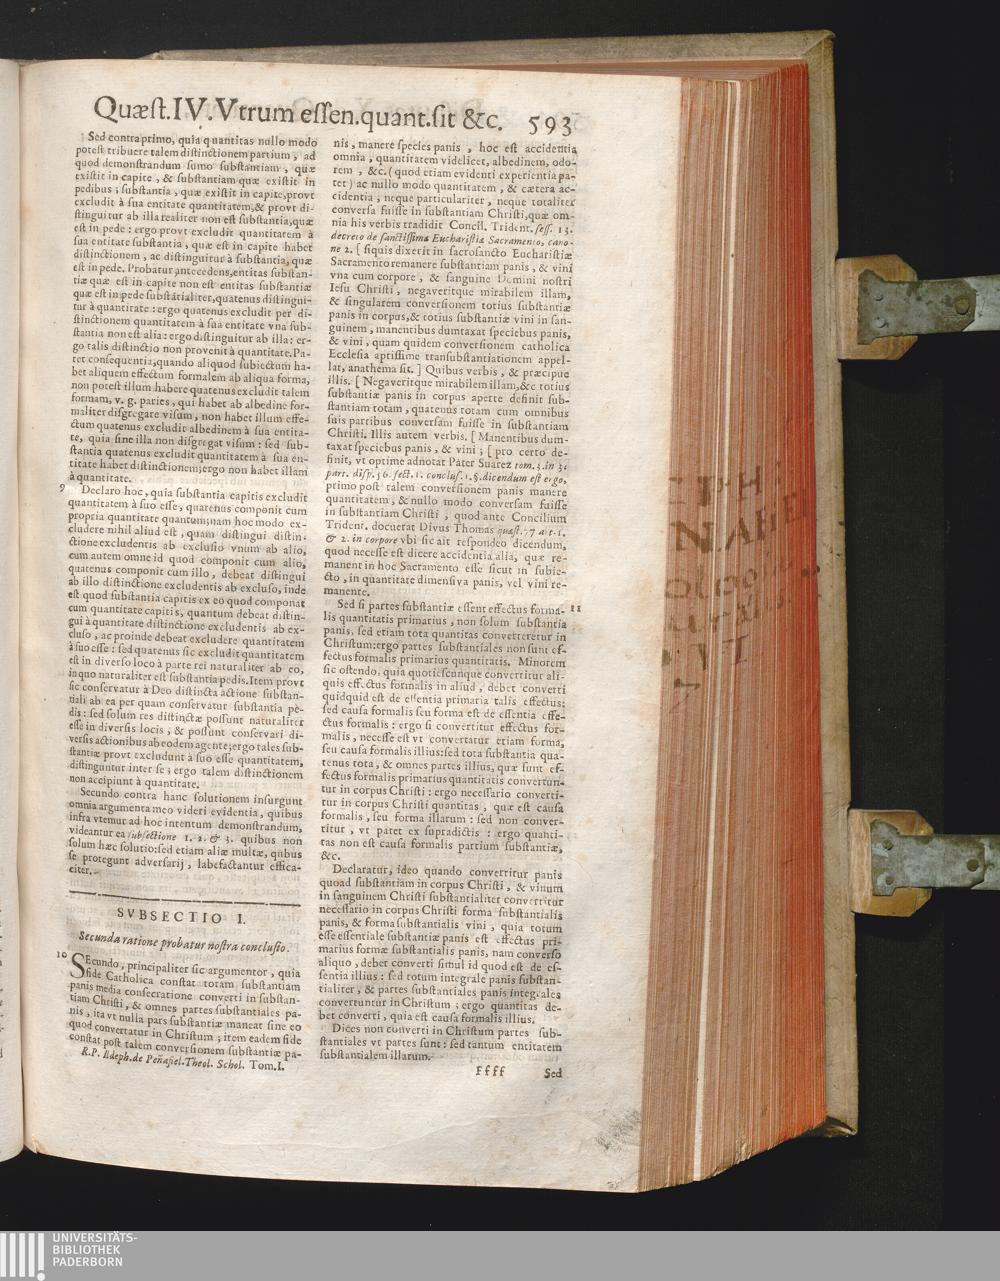 Quæst.IV.Vtrum essen.quant.sit &c. 593
Sed contra primo, quia quantitas nullo modo
potest tribuere talem distinctionem partium, ad
quod demonstrandum sumo substantiam, quæ
existit in capite, & substantiam quæ existit in
pedibus; substantia, quæ existit in capite,provt
excludit à sua entitate quantitatem,& provt di-
stinguitur ab illa realiter non est substantia,quæ
est in pede: ergo provt excludit quantitatem à
sua entitate substantia, quæ est in capite habet
distinctionem, ac distinguitur à substantia, quæ
est in pede. Probatur antecedens,entitas substan-
tiæ quæ est in capite non est entitas substantiæ
quæ est in pede substātialiter,quatenus distingui-
tur à quantitate: ergo quatenus excludit per di-
stinctionem quantitatem à sua entitate vna sub-
stantia non est alia: ergo distinguitur ab illa: er-
go talis distinctio non provenit à quantitate. Pa-
tet consequentia,quando aliquod subiectum ha-
bet aliquem effectum formalem ab aliqua forma,
non potest illum habere quatenus excludit talem
formam, v. g. paries, qui habet ab albedine for-
maliter disgregare visum, non habet illum effe-
ctum quatenus excludit albedinem à sua entita-
te, quia sine illa non disgregat visum: sed sub-
stantia quatenus excludit quantitatem à sua en-
titate habet distinctionem;ergo non habet illam
à quantitate.
9 Declaro hoc, quia substantia capitis excludit
quantitatem à suo esse, quatenus componit cum
propria quantitate quantum;nam hoc modo ex-
cludere nihil aliud est, quam distingui distin-
ctione excludentis ab exclusio vnum ab alio,
cum autem omne id quod componit cum alio,
quatenus componit cum illo, debeat distingui
ab illo distinctione excludentis ab excluso, inde
est quod substantia capitis ex eo quod componat
cum quantitate capitis, quantum debeat distin-
gui à quantitate distinctione excludentis ab ex-
cluso, ac proinde debeat excludere quantitatem
à suo esse: sed quatenus sic excludit quantitatem
est in diverso loco à parte rei naturaliter ab eo,
in quo naturaliter est substantia pedis. Item provt
sic conservatur à Deo distincta actione substan-
tiali ab ea per quam conservatur substantia pe-
dis: sed solum res distinctæ possunt naturaliter
esse in diversis locis, & possunt conservari di-
versis actionibus ab eodem agente;ergo tales sub-
stantiæ provt excludunt à suo esse quantitatem,
distinguntur inter se; ergo talem distinctionem
non accipiunt à quantitate.
Secundo contra hanc solutionem insurgunt
omnia argumenta meo videri evidentia, quibus
infra vtemur ad hoc intentum demonstrandum,
videantur ea subsectione 1. 2. & 3. quibus non
solum hæc solutio:sed etiam aliæ multæ, quibus
se protegunt adversarij, labefactantur effica-
citer.
SVBSECTIO I.
Secunda ratione probatur nostra conclusio.
10 SEcundo, principaliter sic argumentor, quia
fide Catholica constat totam substantiam
panis media consecratione converti in substan-
tiam Christi, & omnes partes substantiales pa-
nis, ita vt nulla pars substantiæ maneat sine eo
quod convertatur in Christum; item eadem fide
constat post talem conversionem substantiæ pa-
R.P. Ildeph.de Peñafiel.Theol. Schol. Tom.I.
nis, manere species panis, hoc est accidentia
omnia, quantitatem videlicet, albedinem, odo-
rem, &c. (quod etiam evidenti experientia pa-
tet) ac nullo modo quantitatem, & cætera ac-
cidentia, neque particulariter, neque totaliter
conversa fuisse in substantiam Christi,quæ om-
nia his verbis tradidit Concil. Trident. sess. 13.
decreto de sanctissima Eucharistiæ Sacramento, cano-
ne 2. [ siquis dixerit in sacrosancto Eucharistiæ
Sacramento remanere substantiam panis, & vini
vna cum corpore, & sanguine Domini nostri
Iesu Christi, negaveritque mirabilem illam,
& singularem conversionem totius substantiæ
panis in corpus,& totius substantiæ vini in san-
guinem, manentibus dumtaxat speciebus panis,
& vini, quam quidem conversionem catholica
Ecclesia aptissime transubstantiationem appel-
lat, anathema sit. ] Quibus verbis, & præcipue
illis. [ Negaveritque mirabilem illam,&c totius
substantiæ panis in corpus aperte definit sub-
stantiam totam, quatenus totam cum omnibus
suis partibus conversam fuisse in substantiam
Christi. Illis autem verbis. [ Manentibus dum-
taxat speciebus panis, & vini; [ pro certo de-
finit, vt optime adnotat Pater Suarez tom. 3. in 3.
part. disp. 56. sect. 1. conclus. 1.§.dicendum est ergo,
primo post talem conversionem panis manere
quantitatem, & nullo modo conversam fuisse
in substantiam Christi, quod ante Concilium
Trident. docuerat Divus Thomas quæst. 77 art. 1.
& 2. in corpore vbi sic ait respondeo dicendum,
quod necesse est dicere accidentia alia, quæ re-
manent in hoc Sacramento esse sicut in subie-
cto, in quantitate dimensiva panis, vel vini re-
manente.
Sed si partes substantiæ essent effectus forma- 11
lis quantitatis primarius, non solum substantia
panis, sed etiam tota quantitas converteretur in
Christum:ergo partes substantiales non sunt ef-
fectus formalis primarius quantitatis. Minorem
sic ostendo, quia quotiescunque convertitur ali-
quis effectus formalis in aliud, debet converti
quidquid est de essentia primaria talis effectus:
sed causa formalis seu forma est de essentia effe-
ctus formalis: ergo si convertitur effectus for-
malis, necesse est vt convertatur etiam forma,
seu causa formalis illius:sed tota substantia qua-
tenus tota, & omnes partes illius, quæ sunt ef-
fectus formalis primarius quantitatis convertun-
tur in corpus Christi: ergo necessario converti-
tur in corpus Christi quantitas, quæ est causa
formalis, seu forma illarum: sed non conver-
titur, vt patet ex supradictis: ergo quanti-
tas non est causa formalis partium substantiæ,
&c.
Declaratur, ideo quando convertitur panis
quoad substantiam in corpus Christi, & vinum
in sanguinem Christi substantialiter convertitur
necessario in corpus Christi forma substantialis
panis, & forma substantialis vini, quia totum
esse essentiale substantiæ panis est effectus pri-
marius formæ substantialis panis, nam converso
aliquo, debet converti simul id quod est de es-
sentia illius: sed totum integrale panis substan-
tialiter, & partes substantiales panis integrales
convertuntur in Christum; ergo quantitas de-
bet converti, quia est causa formalis illius.
Dices non converti in Christum partes sub-
stantiales vt partes sunt: sed tantum entitatem
substantialem illarum.
Ffff Sed
UNIVERSITÄTS-
BIBLIOTHEK
PADERBORN